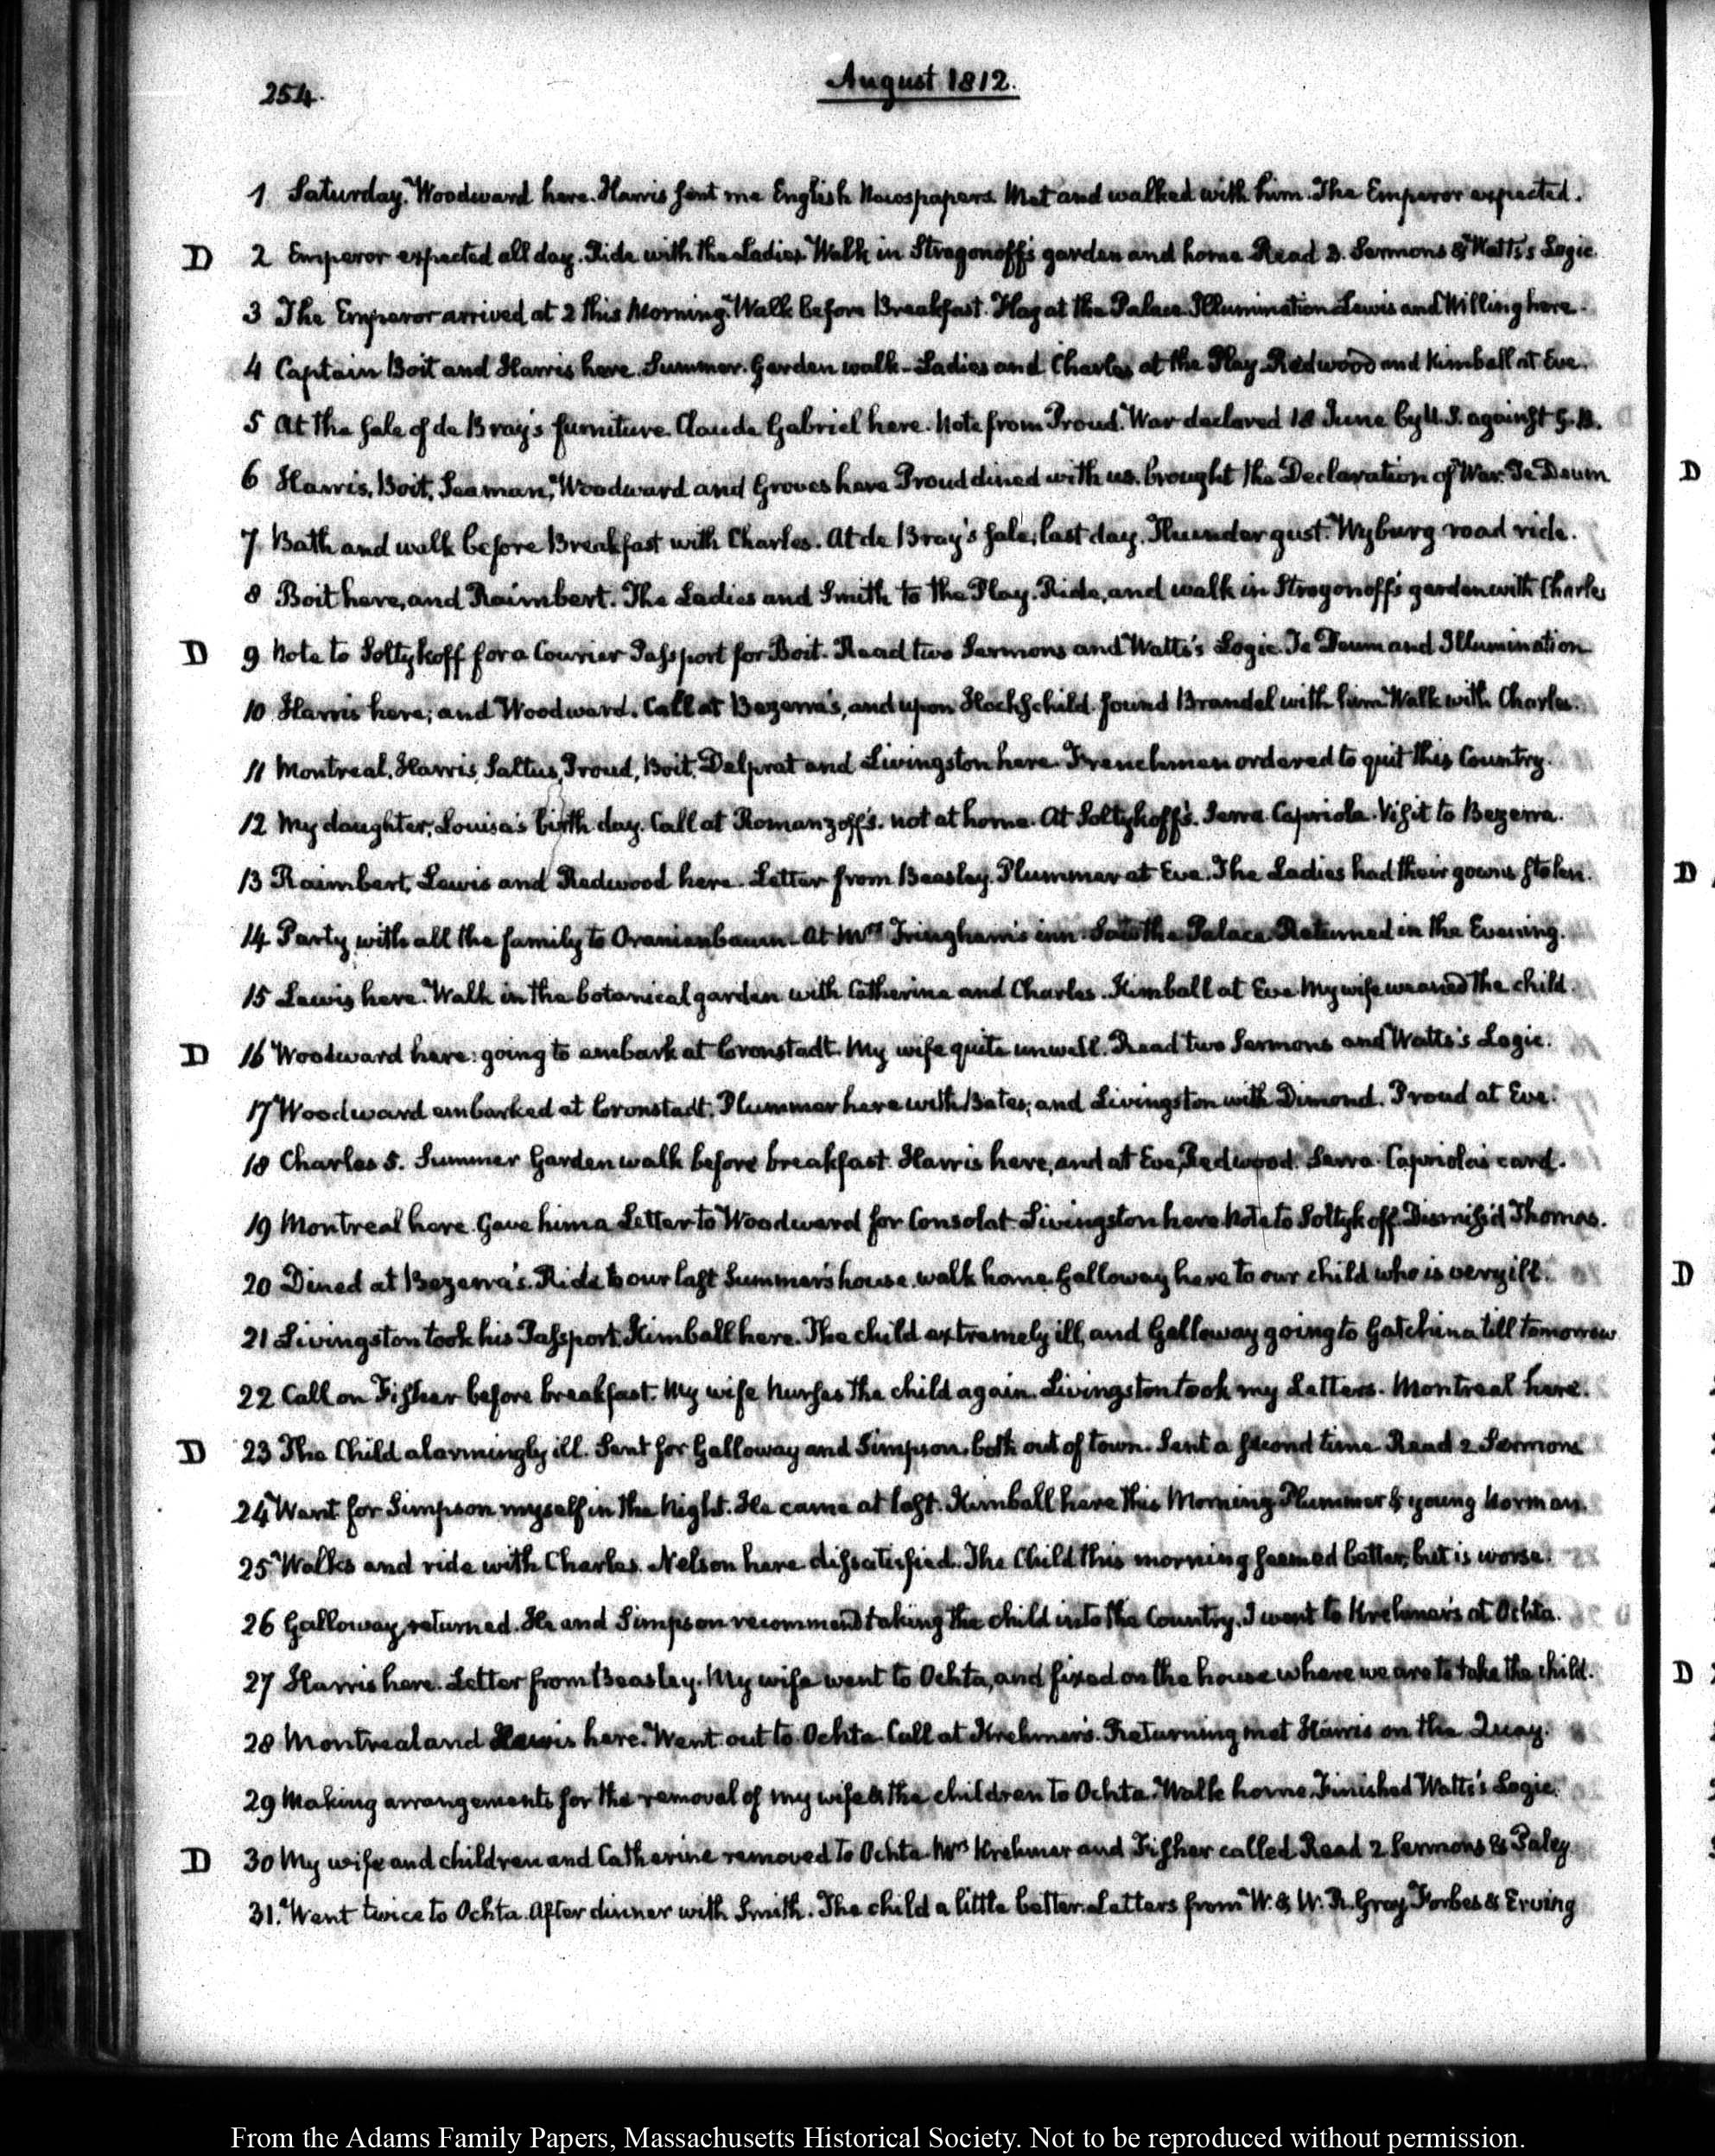 254.
August 1812.
1 Saturday. Woodward here. Harris sent me English Newspapers. Met and walked with him. The Emperor expected.
D 2 Emperor expected all day. Ride with the Ladies. Walk in Strogonoff's garden and home Read 2. Sermons & Watts's Logic.
3 The Emperor arrived at 2 this Morning. Walk before Breakfast. Flag at the Palace. Illumination Lewis and Willing here.
4 Captain Boit and Harris here. Summer. Garden walk. Ladies and Charles at the Play. Redwood and Kimball at Eve.
5 At the sale of de Bray's furniture. Claude Gabriel here. Note from Proud. War declared 18 June by U.S. against G.B.
6 Harris, Boit, Seaman, Woodward and Groves here Proud dined with us. brought the Declaration of War. Te Deum
7 Bath and walk before Breakfast with Charles. At de Bray's sale, last day. Thunder gust. Wyburg road ride.
8 Boit here, and Raimbert. The Ladies and Smith to the Play. Ride, and walk in Strogonoff's garden with Charles
D 9 Note to Soltykoff for a Courier Passport for Boit. Read two Sermons and Watts's Logic. Te Deum and Illumination
10 Harris here; and Woodward. Call at Bezerra's, and upon Hochschild. found Brandel with him. Walk with Charles.
11 Montreal, Harris, Saltus, Proud, Boit, Delprat and Livingston here. Frenchmen ordered to quit this Country.
12 My daughter, Louisa's birth day. Call at Romanzoff's. not at home. At Soltykoff's. Serra Capriola. Visit to Bezerra.
13 Raimbert, Lewis and Redwood here. Letter from Beasley. Plummer at Eve. The Ladies had their gowns stolen.
14 Party with all the family to Oranienbaum. At Mrs Tringham's inn. Saw the Palace. Returned in the Evening.
15 Lewis here. Walk in the botanical garden with Catherine and Charles. Kimball at Eve My wife weaned the child.
D 16 Woodward here: going to embark at Cronstadt. My wife quite unwell. Read two Sermons and Watts's Logic.
17 Woodward embarked at Cronstadt. Plummer here with Bates; and Livingston with Dimond. Proud at Eve.
18 Charles 5. Summer Garden walk before breakfast. Harris here, and at Eve, Redwood. Serra Capriola's card.
19 Montreal here. Gave him a Letter to Woodward for Consolat. Livingston here Note to Soltykoff. Dismiss'd Thomas.
20 Dined at Bezerra's. Ride to our last Summer's house. walk home. Galloway here to our child who is very ill.
21 Livingston took his Passport. Kimball here. The child extremely ill, and Galloway going to Gatchina till tomorrow
22 Call on Fisher before breakfast. My wife Nurses the child again. Livingston took my Letters. Montreal here.
D 23 The Child alarmingly ill. Sent for Galloway and Simpson, both out of town. Sent a second time. Read 2 Sermons
24 Went for Simpson myself in the Night. He came at last. Kimball here this Morning. Plummer & young Norman.
25 Walks and ride with Charles. Nelson here dissatisfied. The Child this morning seemed better, but is worse.
26 Galloway, returned. He and Simpson recommend taking the child into the Country. I went to Krehmer's at Ochta.
27 Harris here. Letter from Beasley. My wife went to Ochta, and fixed on the house where we are to take the child.
28 Montreal and Lewis here. Went out to Ochta. Call at Krehmer's. Returning met Harris on the Quay.
29 Making arrangements for the removal of my wife & the children to Ochta. Walk home. Finished Watts's Logic.
D 30 My wife and children and Catherine removed to Ochta. Mrs Krehmer and Fisher called Read 2 Sermons & Paley
31. Went twice to Ochta. After dinner with Smith. The child a little better. Letters from W. & W. R. Gray, Forbes & Erving
D
D
D
D
From the Adams Family Papers, Massachusetts Historical Society. Not to be reproduced without permission.